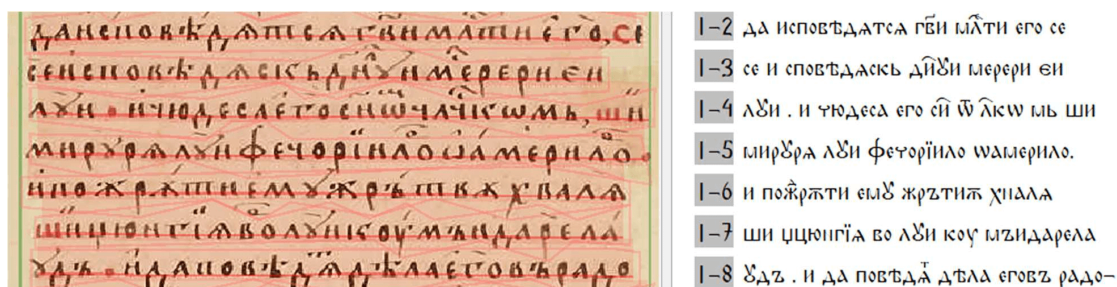 да исповѣдѧтсѧ гв҃и мл҃ти его, се
се исповѣдѧскь дн҃ꙋи мерери еи
лꙋи . и чюдеса его сн҃ѡ҃ члч҃кѡмь, ши
мирꙋрѧ лꙋи фечорїи ло ѡамерило.
и пожрѫти емꙋ жрътвѫ хвалѧ
ꙋдъ . и да повѣдѧ дѣла его въ радо
1-2 да исповѣдѧтсѧ гв҃и мл҃ти его се
1-3 се и сповѣдѧскь дн҃ꙋи мерери еи
1-4 лꙋи . и чюдеса его сн҃ ѿ л҃кѡ мь ши
1-5 мирꙋрѧ лꙋи фечорїило ѡамерило.
1-6 и пож҃рѫти емꙋ жрътиѫ хналѧ
1-7 ши џцюнгїѧ во лꙋи коу мъидарела
1-8 ꙋдъ . и да повѣдѧⷮ дѣла еговъ радо-